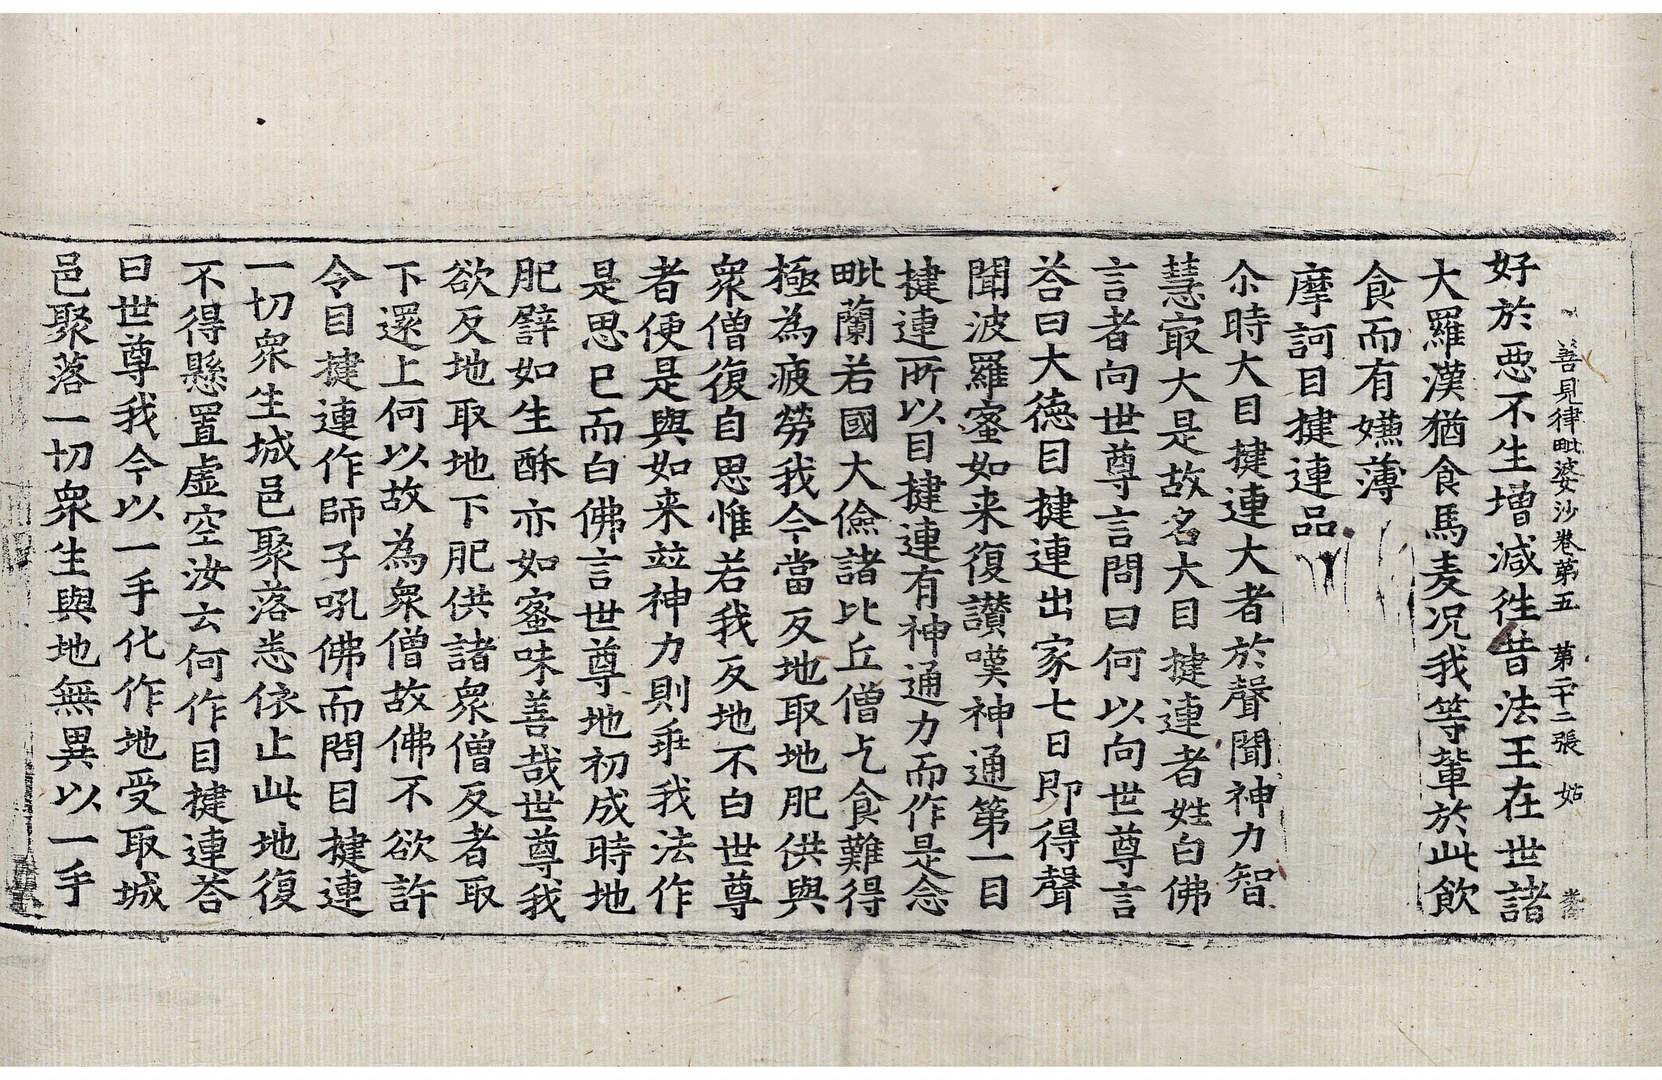 善見律毗婆沙卷第五　第二十二張　姑
好於惡不生增減徃昔法王在世諸
大羅漢猶食馬麦况我等軰於此飲
食而有嫌薄
摩訶目揵連品
尒時大目揵連大者於聲聞神力智
慧㝡大是故名大目揵連者姓白佛
言者向世尊言問曰何以向世尊言
荅曰大德目揵連出家七日即得聲
聞波羅蜜如来復讃嘆神通第一目
揵連所以目揵連有神通力而作是念
毗蘭若國大儉諸比丘僧乞食難得
極為疲勞我今當反地取地肥供與
衆僧復自思惟若我反地不白世尊
者便是與如来並神力則乖我法作
是思已而白佛言世尊地初成時地
肥譬如生酥亦如蜜味善哉世尊我
欲反地取地下肥供諸衆僧反者取
下還上何以故為衆僧故佛不欲許
令目揵連作師子吼佛而問目揵連
一切衆生城邑聚落悉依止此地復
不得懸置虛空汝云何作目揵連荅
曰世尊我今以一手化作地受取城
邑聚落一切衆生與地無異以一手